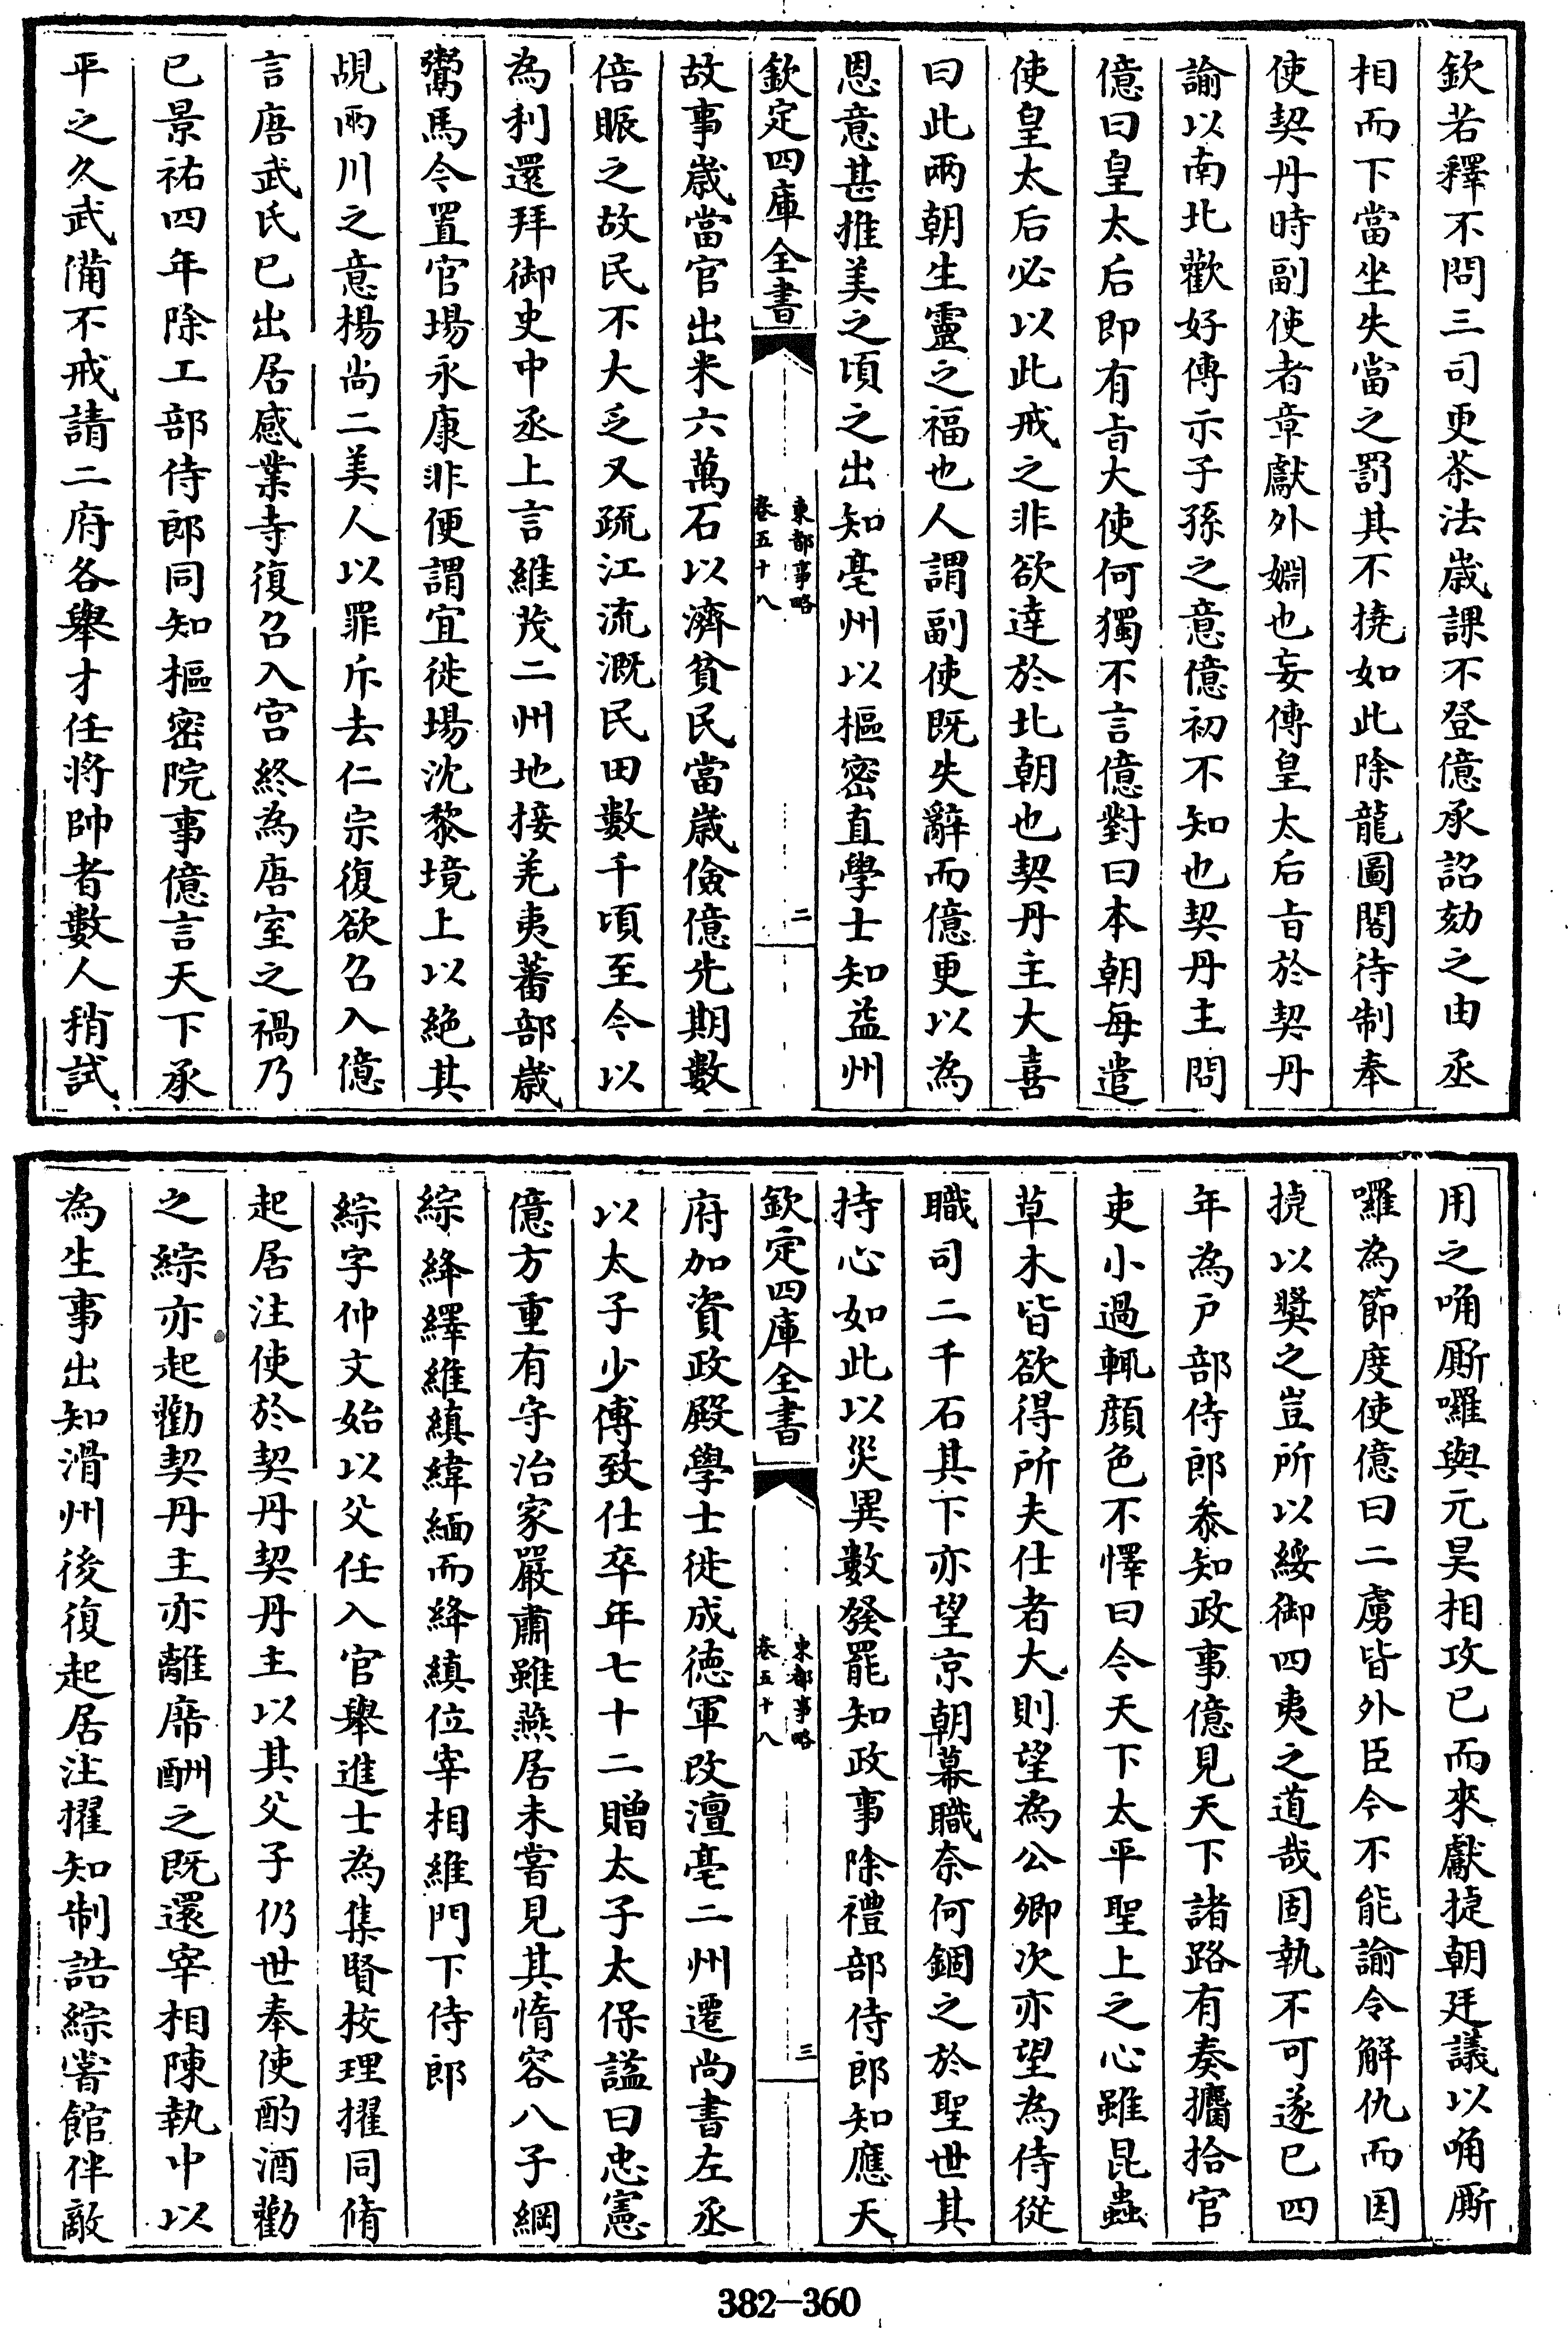 欽若釋不問三司更茶法歳課不登億承詔劾之由丞
相而下當坐失當之罰其不撓如此除龍圖閣待制奉
使契丹時副使者章獻外婣也妄傳皇太后㫖於契丹
諭以南北歡好傳示子孫之意億初不知也契丹主問
億曰皇太后即有㫖大使何獨不言億對曰本朝每遣
使皇太后必以此戒之非欲達於北朝也契丹主大喜
曰此兩朝生靈之福也人謂副使既失辭而億更以為
恩意甚推美之頃之出知亳州以樞密直學士知益州
欽定四庫全書
東都事略
卷五十八
二
故事歳當官出米六萬石以濟貧民當歳儉億先期數
倍賑之故民不大乏又疏江流溉民田數千頃至今以
為利還拜御史中丞上言維茂二州地接羌夷蕃部歳
鬻馬今置官場永康非便謂宜徙場沈黎境上以絶其
覘兩川之意楊尚二美人以罪斥去仁宗復欲召入億
言唐武氏已出居感業寺復召入宫終為唐室之禍乃
已景祐四年除工部侍郎同知樞密院事億言天下承
平之久武備不戒請二府各舉才任將帥者數人稍試
用之唃厮囉與元昊相攻已而來獻捷朝廷議以唃厮
囉為節度使億曰二虜皆外臣今不能諭令解仇而因
捷以奬之豈所以綏御四夷之道哉固執不可遂已四
年為户部侍郎叅知政事億見天下諸路有奏攟拾官
吏小過輒顔色不懌曰今天下太平聖上之心雖昆蟲
草木皆欲得所夫仕者大則望為公卿次亦望為侍從
職司二千石其下亦望京朝幕職奈何錮之於聖世其
持心如此以災異數發罷知政事除禮部侍郎知應天
欽定四庫全書
東都事略
卷五十八
三
府加資政殿學士徙成徳軍改澶亳二州遷尚書左丞
以太子少傅致仕卒年七十二贈太子太保諡曰忠憲
億方重有守治家嚴肅雖燕居未嘗見其惰容八子綱
綜絳繹維縝緯緬而絳縝位宰相維門下侍郎
綜字仲文始以父任入官舉進士為集賢校理擢同脩
起居注使於契丹契丹主以其父子仍世奉使酌酒勸
之綜亦起勸契丹主亦離席酬之既還宰相陳執中以
為生事出知滑州後復起居注擢知制誥綜嘗館伴敵
382-360